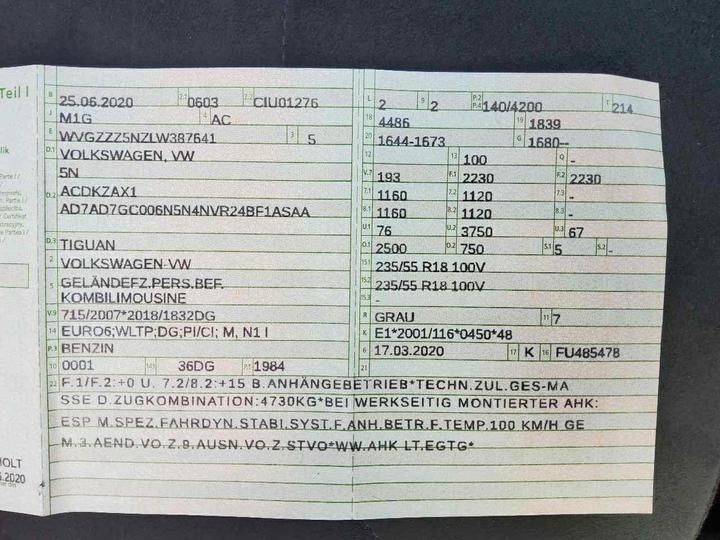 Teil I
B 25.06.2020 2.1 0603 2.2 CIU01276
J M1G 4 AC
E WVGZZZ5NZLW387641 3 5
D.1 VOLKSWAGEN, VW
5N
D.2 ACDKZAX1
AD7AD7GC006N5N4NVR24BF1ASAA
D.3 TIGUAN
2 VOLKSWAGEN-VW
5 GELÄNDEFZ.PERS.BEF.
KOMBILIMOUSINE
V.9 715/2007*2018/1832DG
14 EURO6;WLTP;DG;PI/CI; M, N1 I
P.3 BENZIN
10 0001 14.1 36DG P.1 1984
L 2 9 2 P.2 P.4 140/4200 T 214
18 4486 19 1839
20 1644-1673 G 1680--
12 13 100 Q -
V.7 193 F.1 2230 F.2 2230
7.1 1160 7.2 1120 7.3 -
8.1 1160 8.2 1120 8.3 -
U.1 76 U.2 3750 U.3 67
O.1 2500 O.2 750 S.1 5 S.2 -
15.1 235/55 R18 100V
15.2 235/55 R18 100V
15.3 -
R GRAU 11 7
K E1*2001/116*0450*48
6 17.03.2020 17 K 16 FU485478
21
22 F.1/F.2:+0 U. 7.2/8.2:+15 B.ANHÄNGEBETRIEB*TECHN.ZUL.GES-MA
SSE D.ZUGKOMBINATION:4730KG*BEI WERKSEITIG MONTIERTER AHK:
ESP M.SPEZ.FAHRDYN.STABI.SYST.F.ANH.BETR.F.TEMP.100 KM/H GE
M.3.AEND.VO.Z.9.AUSN.VO.Z.STVO*WW.AHK LT.EGTG*
HOLT
.2020